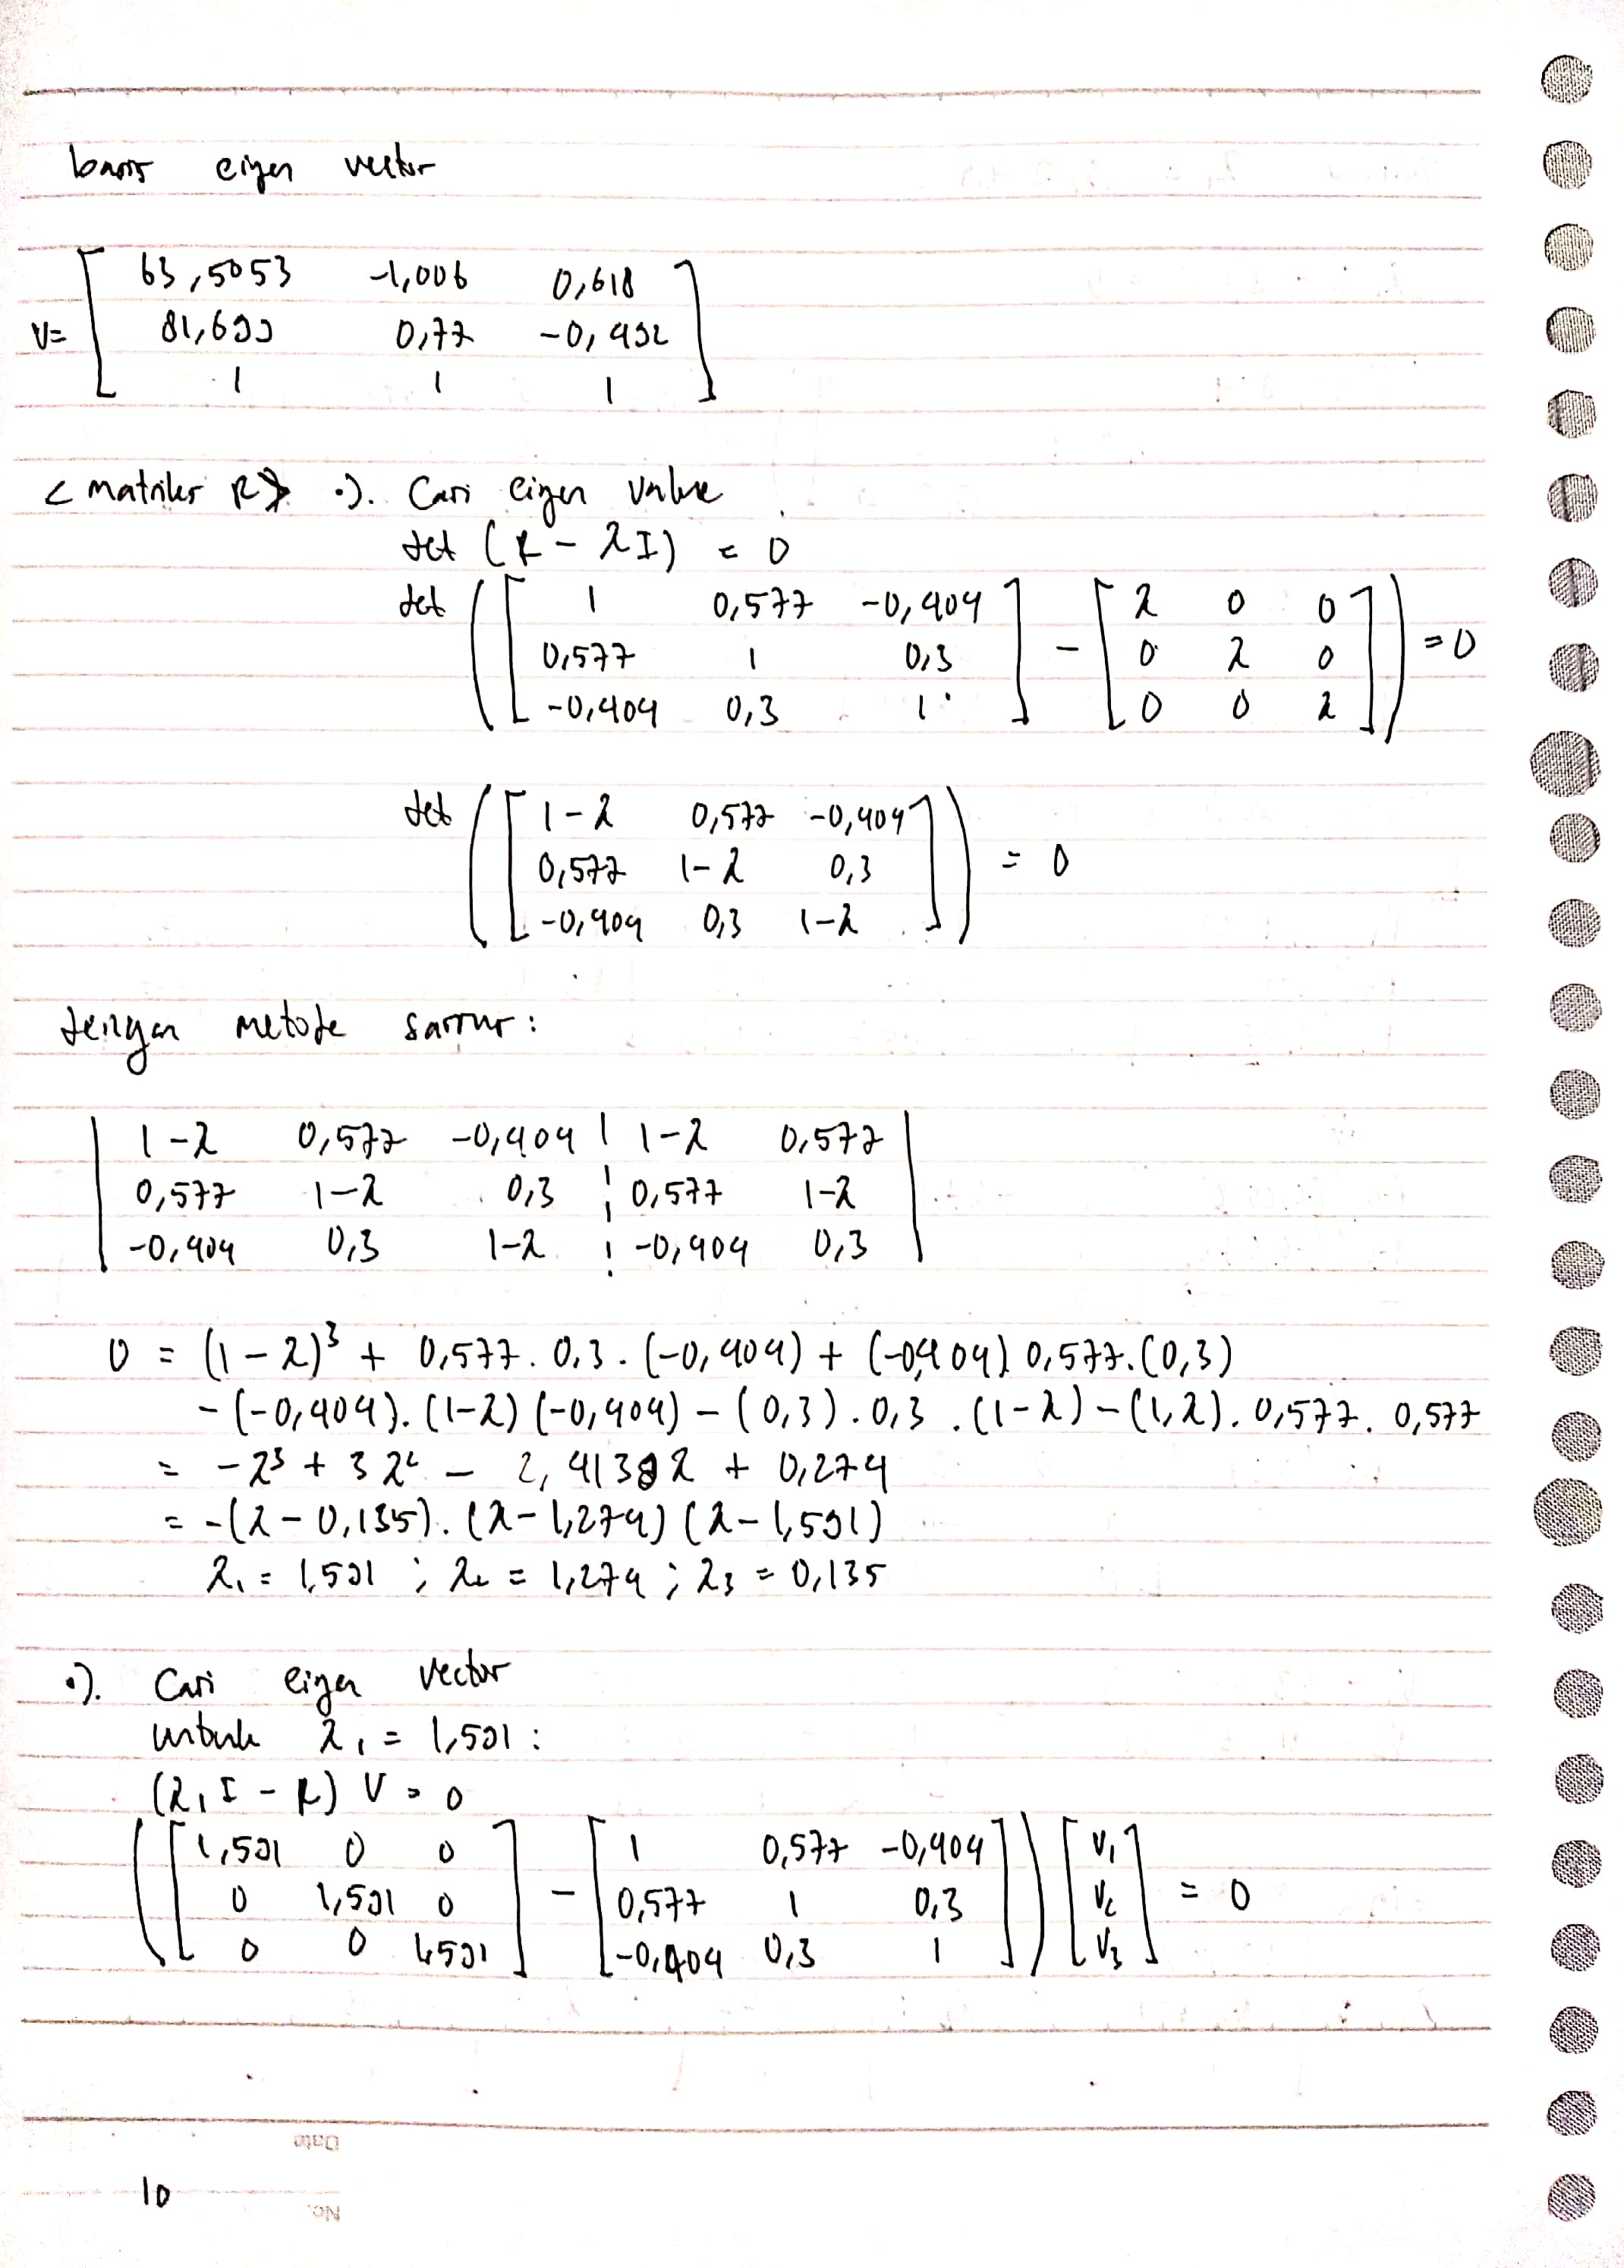 basis eigen vector
V= [ 63,5053 -1,006 0,618
81,699 0,77 -0,492
1 1 1 ]
< matriks R > •). Cari eigen value
det (R - λI) = 0
det ( [ 1 0,577 -0,404 ] - [ λ 0 0 ] ) = 0
[ 0,577 1 0,3 ] [ 0 λ 0 ]
[ -0,404 0,3 1 ] [ 0 0 λ ]
det ( [ 1-λ 0,577 -0,404 ] ) = 0
[ 0,577 1-λ 0,3 ]
[ -0,404 0,3 1-λ ]
dengan metode sarrus :
| 1-λ 0,577 -0,404 ¦ 1-λ 0,577 |
| 0,577 1-λ 0,3 ¦ 0,577 1-λ |
| -0,404 0,3 1-λ ¦ -0,404 0,3 |
0 = (1-λ)³ + 0,577. 0,3. (-0,404) + (-0,404) 0,577.(0,3)
- (-0,404). (1-λ) (-0,404) - (0,3). 0,3 .(1-λ) - (1,λ). 0,577. 0,577
= -λ³ + 3λ² - 2,4138λ + 0,274
= -(λ-0,135). (λ-1,274) (λ-1,591)
λ₁ = 1,591 ; λ₂ = 1,274 ; λ₃ = 0,135
•). Cari eigen vector
untuk λ₁ = 1,591 :
(λ₁I - R) V = 0
( [ 1,591 0 0 ] - [ 1 0,577 -0,404 ] ) [ V₁ ] = 0
[ 0 1,591 0 ] [ 0,577 1 0,3 ] [ V₂ ]
[ 0 0 1,591 ] [ -0,404 0,3 1 ] [ V₃ ]
Date
10
No.